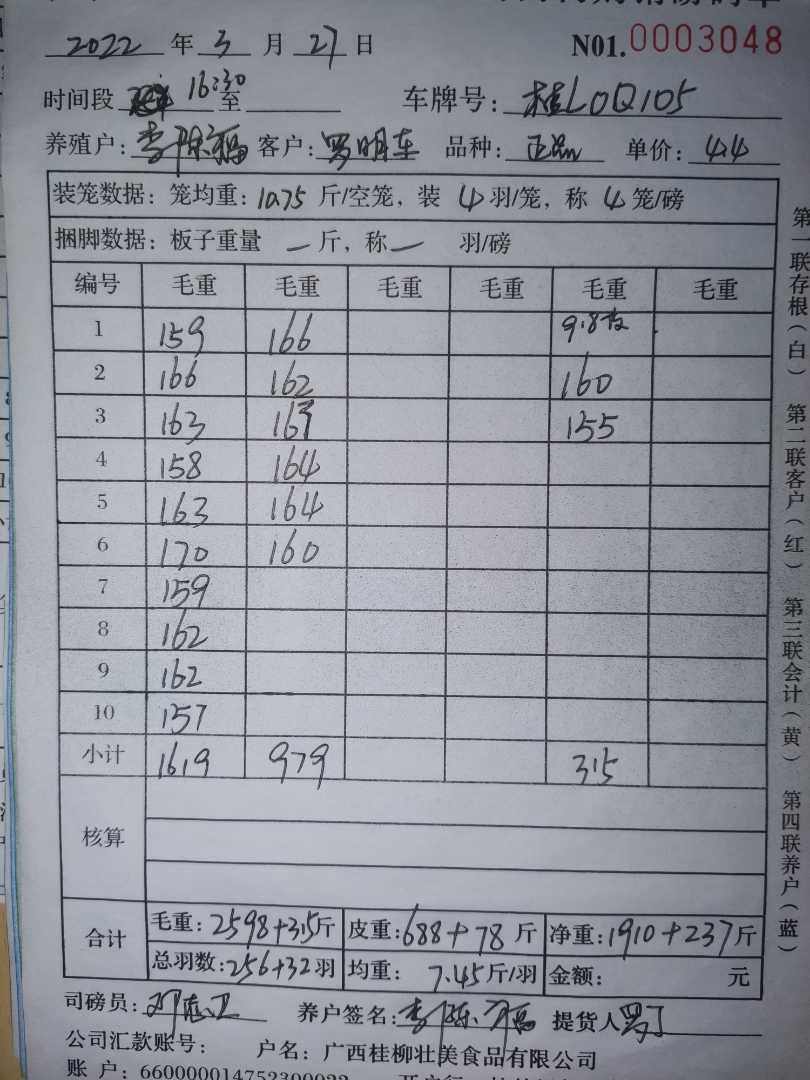 2022 年 3 月 27 日 N01.0003048
时间段 16:30 至 车牌号: 桂L0Q105
养殖户: 李 福 客户: 罗明车 品种: 正品 单价: 4.4
装笼数据: 笼均重: 10.75 斤/空笼, 装 4 羽/笼, 称 4 笼/磅
捆脚数据: 板子重量 一 斤, 称 一 羽/磅
编号 毛重 毛重 毛重 毛重 毛重 毛重
1 159 166 9.8
2 166 162 160
3 163 163 155
4 158 164
5 163 164
6 170 160
7 159
8 162
9 162
10 157
小计 1619 979 315
核算
合计 毛重: 2598+315 斤 皮重: 688+78 斤 净重: 1910+237 斤
总羽数: 256+32 羽 均重: 7.45 斤/羽 金额: 元
司磅员: 邓 卫 养户签名: 李 福 提货人 罗
公司汇款账号: 户名: 广西桂柳壮美食品有限公司
账 户: 660000014752300022
第一联存根(白) 第二联客户(红) 第三联会计(黄) 第四联养户(蓝)